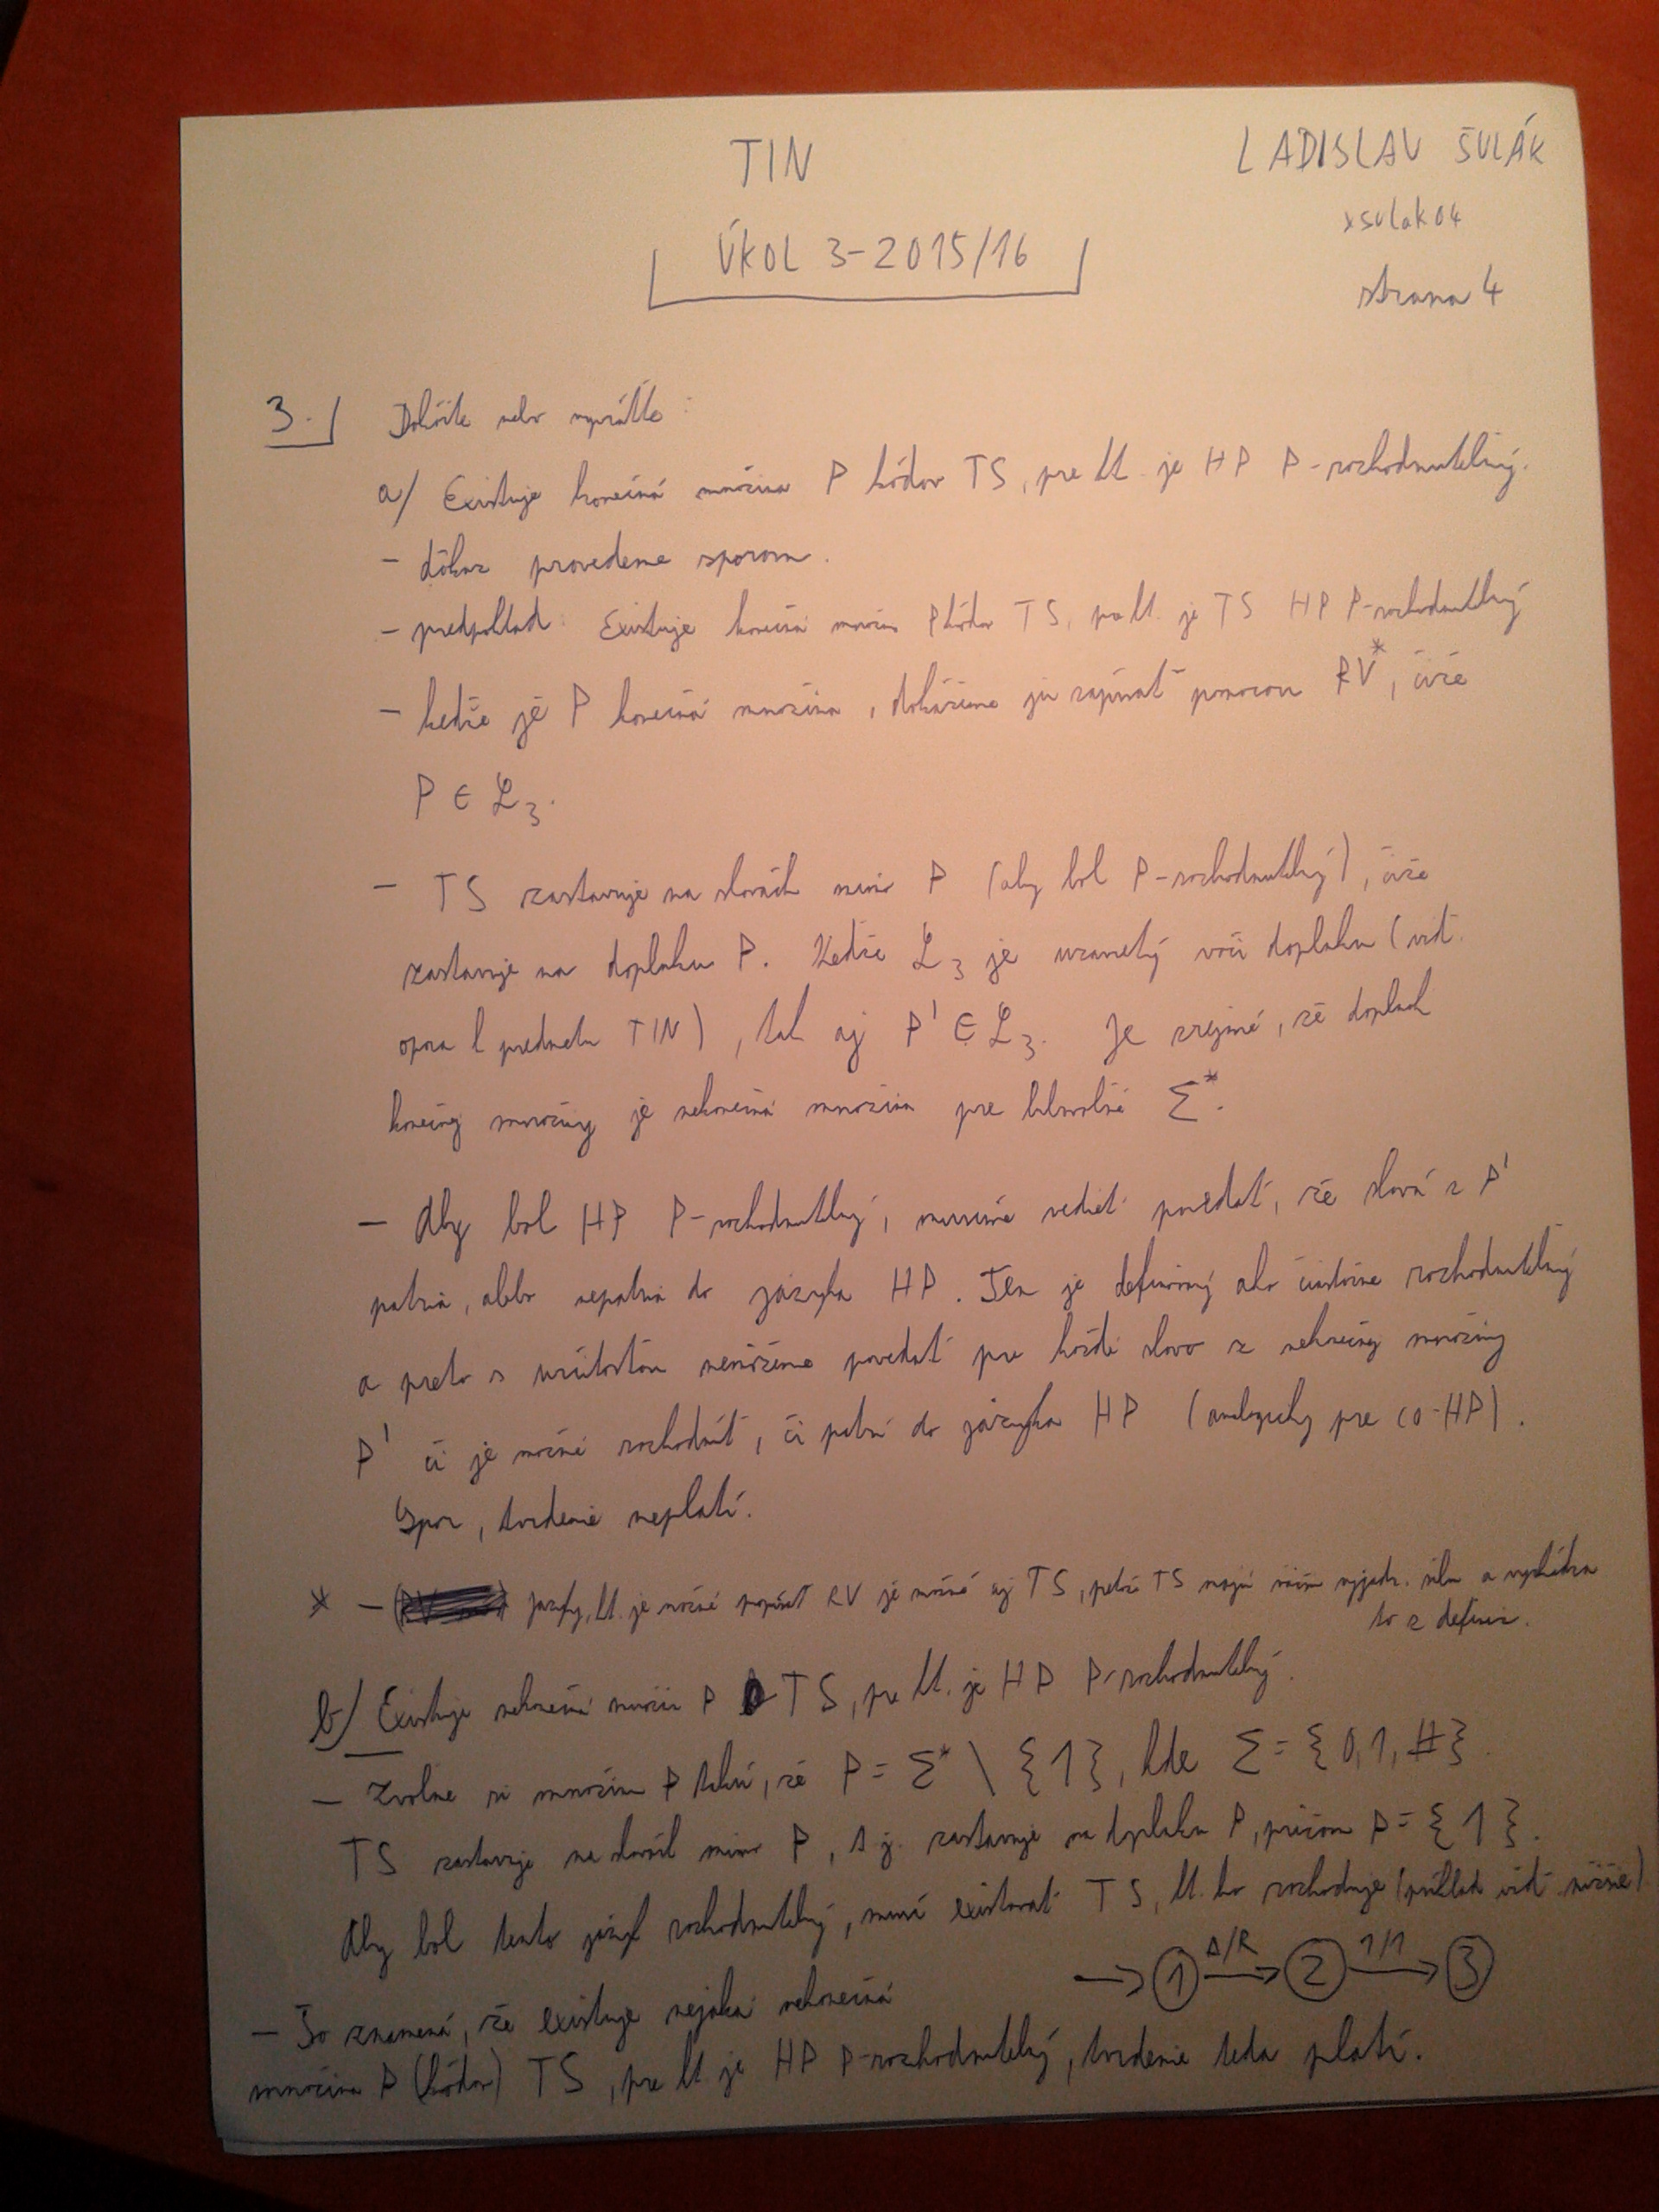 TIN
LADISLAV ŠULÁK
xsulak04
ÚKOL 3-2015/16
strana 4
3. Dokážte nebo vyvráťte:
a) Existuje konečná množina P kódov TS, pre kt. je HP P-rozhodnutelný.
- dôkaz provedeme sporom.
- predpoklad: Existuje konečná množina P kódov TS, pre kt. je TS HP P-rozhodnutelný
- kedže je P konečná množina, dokážeme ju zapísať pomocou RV*, čiže
P ∈ ℒ3.
- TS zastavuje na slovách mimo P (aby bol P-rozhodnutelný), čiže
zastavuje na doplnku P. Kedže ℒ3 je uzavretý voči doplnku (viď.
opora k predmetu TIN), tak aj P' ∈ ℒ3. Je zrejmé, že doplnok
konečnej množiny je nekonečná množina pre ľubovolné Σ*.
- Aby bol HP P-rozhodnutelný, musíme vedieť povedať, že slová z P'
patria, alebo nepatria do jazyka HP. Ten je definovaný ako čiastočne rozhodnutelný
a preto s určitosťou nemôžeme povedať pre každé slovo z nekonečnej množiny
P' či je možné rozhodnúť, či patrí do jazyka HP (analogicky pre co-HP).
Spor, tvrdenie neplatí.
* - jazyky, kt. je možné popísať RV je možné aj TS, pretože TS majú väčšiu vyjadr. silu a vychádza
to z definície.
b) Existuje nekonečná množina P TS, pre kt. je HP P-rozhodnutelný.
- Zvolme si množinu P takú, že P = Σ* \ {1}, kde Σ = {0,1,#}.
TS zastavuje na slovách mimo P, t.j. zastavuje na doplnku P, pričom P = {1}.
Aby bol tento jazyk rozhodnutelný, musí existovať TS, kt. ho rozhoduje (príklad viď nižšie)
→ 1 Δ/R → 2 1/1 → 3
- To znamená, že existuje nejaká nekonečná
množina P (kódov) TS, pre kt. je HP P-rozhodnutelný, tvrdenie teda platí.